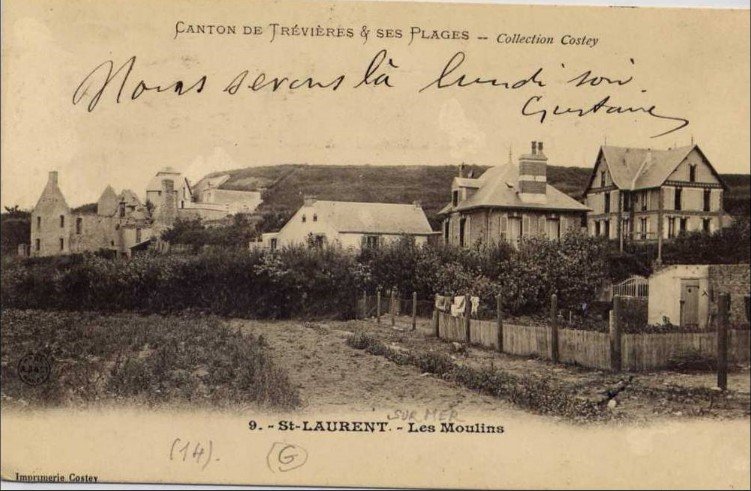 CANTON DE TRÉVIÈRES & SES PLAGES -- Collection Costey
Nous serons là lundi soir
Gustave
9. - St-LAURENT. - Les Moulins
SUR MER
(14). G
Imprimerie Costey